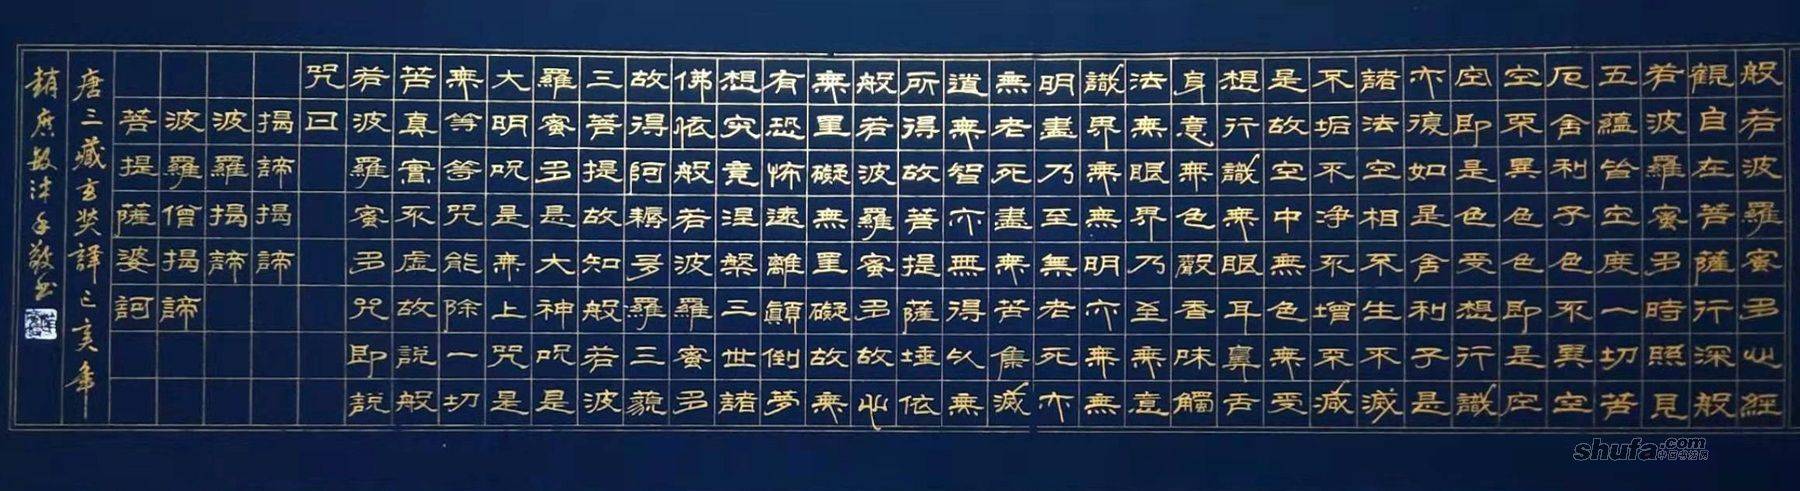 般若波羅蜜多心經
觀自在菩薩行深般
若波羅蜜多時照見
五蘊皆空度一切苦
厄舍利子色不異空
空不異色色即是空
空即是色受想行識
亦復如是舍利子是
諸法空相不生不滅
不垢不淨不增不減
是故空中無色無受
想行識無眼耳鼻舌
身意無色聲香味觸
法無眼界乃至無意
識界無無明亦無無
明盡乃至無老死亦
無老死盡無苦集滅
道無智亦無得以無
所得故菩提薩埵依
般若波羅蜜多故心
無罣礙無罣礙故無
有恐怖遠離顛倒夢
想究竟涅槃三世諸
佛依般若波羅蜜多
故得阿耨多羅三藐
三菩提故知般若波
羅蜜多是大神呪是
大明呪是無上呪是
無等等咒能除一切
苦真實不虛故說般
若波羅蜜多咒即說
咒曰
揭諦揭諦
波羅揭諦
波羅僧揭諦
菩提薩婆訶
唐三藏玄奘譯己亥年
趙敏沐手敬書
shufa.com
中国书法网